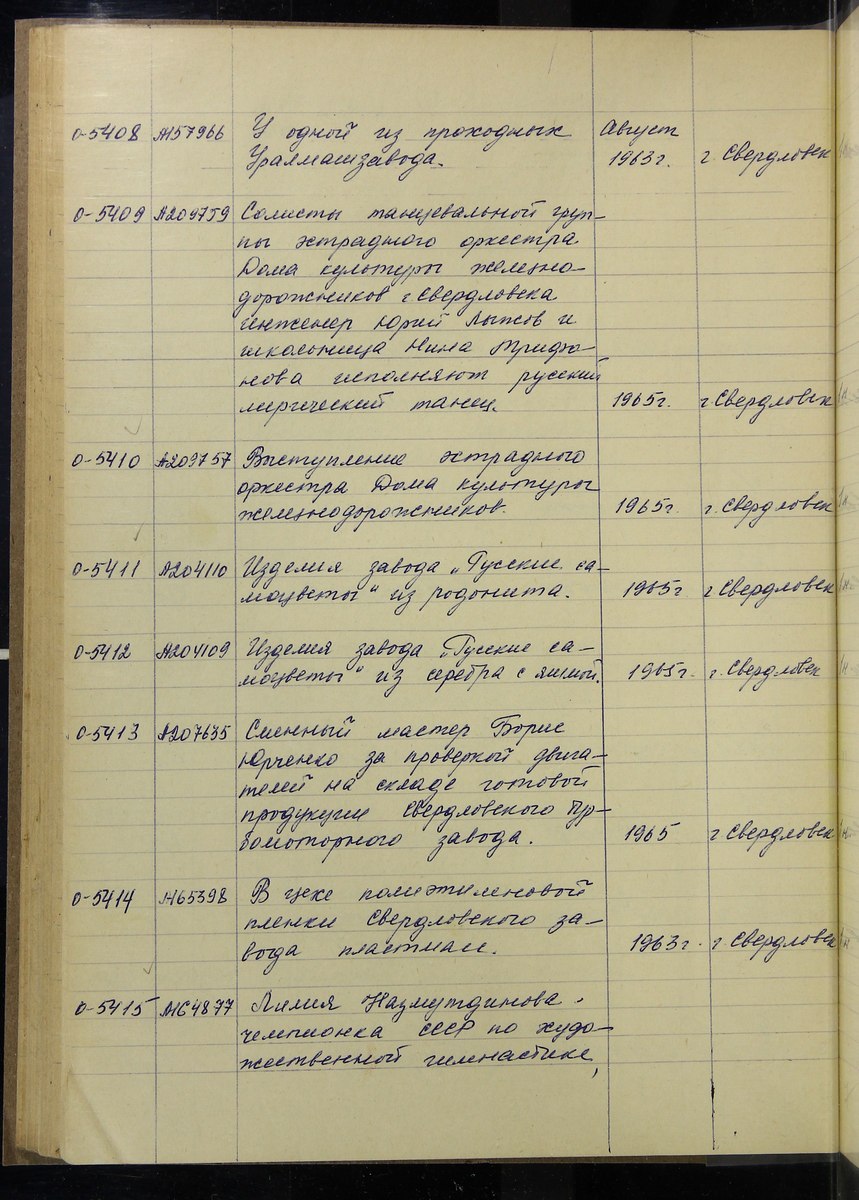 0-5408 А157966 У одной из проходных Август
Уралмашзавода. 1963г. г Свердловск
0-5409 А209759 Солисты танцевальной груп-
пы эстрадного оркестра
Дома культуры железно-
дорожников г Свердловска
инженер Юрий Лыжов и
школьница Нина Трифо-
нова исполняют русский
лирический танец. 1965г. г Свердловск
0-5410 А209757 Выступление эстрадного
оркестра Дома культуры
железнодорожников. 1965г. г. Свердловск
0-5411 А204110 Изделия завода „Русские са-
моцветы" из родонита. 1965г г Свердловск
0-5412 А204109 Изделия завода „Русские са-
моцветы" из серебра с яшмой. 1965г. г. Свердловск
0-5413 А207635 Сменный мастер Борис
Юрченко за проверкой двига-
телей на складе готовой
продукции Свердловского тур-
бомоторного завода. 1965 г Свердловск
0-5414 А165398 В цехе полиэтиленовой
пленки Свердловского за-
вода пластмасс. 1963г. г Свердловск
0-5415 А164877 Лилия Назмутдинова -
чемпионка СССР по худо-
жественной гимнастике,